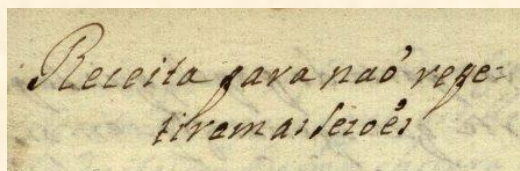 Receita para naõ repe=
tirem as sezoẽs